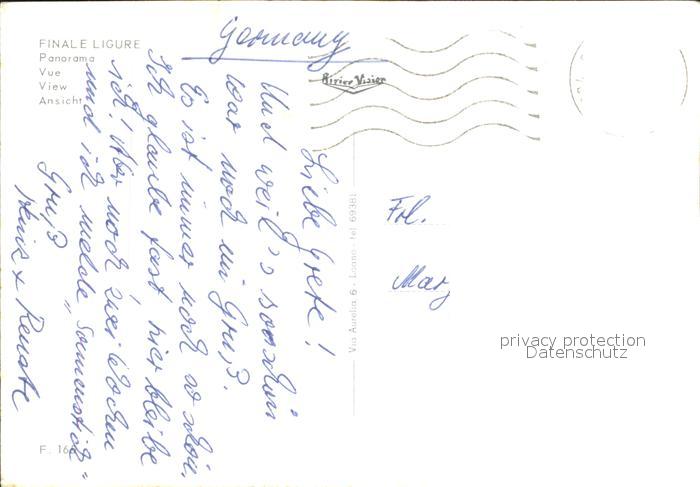 Germany
FINALE LIGURE
Panorama
Vue
View
Ansicht
Rivier Visier
Liebe Grete!
Und weil's so schön
war noch ein Gruß.
Es ist immer noch so schön,
Ich glaube fast hier bleibe
ich! Aber noch zwei Wochen
und ich melde "Sonnenstich"
Gruß
Heinz + Renate
Via Aurelia 6 - Loano - tel 69381
Frl.
Mar
privacy protection
Datenschutz
F. 16